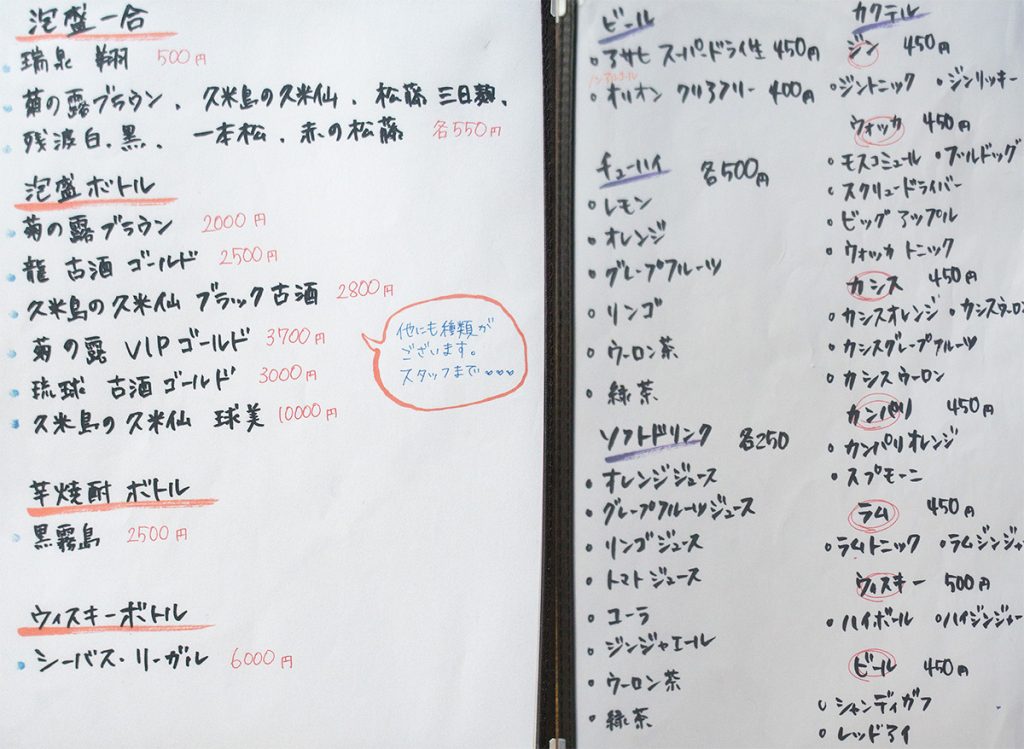 泡盛一合
瑞泉 翔 500円
菊の露ブラウン、久米島の久米仙、松藤 三日麹、
残波 白.黒、一本松、赤の松藤 各550円
泡盛ボトル
菊の露ブラウン 2000円
龍 古酒 ゴールド 2500円
久米島の久米仙 ブラック古酒 2800円
菊の露 VIPゴールド 3700円
琉球 古酒ゴールド 3000円
久米島の久米仙 球美 10000円
他にも種類が
ございます。
スタッフまで
芋焼酎 ボトル
黒霧島 2500円
ウィスキーボトル
シーバス・リーガル 6000円
ビール
アサヒ スーパードライ生 450円
ノンアルコール
オリオン クリアフリー 400円
チューハイ 各500円
レモン
オレンジ
グレープフルーツ
リンゴ
ウーロン茶
緑茶
ソフトドリンク 各250
オレンジジュース
グレープフルーツジュース
リンゴジュース
トマトジュース
コーラ
ジンジャエール
ウーロン茶
緑茶
カクテル
ジン 450円
ジントニック ジンリッキー
ウォッカ 450円
モスコミュール ブルドッグ
スクリュードライバー
ビッグアップル
ウォッカトニック
カシス 450円
カシスオレンジ カシスウーロン
カシスグレープフルーツ
カシスウーロン
カンパリ 450円
カンパリオレンジ
スプモーニ
ラム 450円
ラムトニック ラムジンジャ
ウィスキー 500円
ハイボール ハイジンジャー
ビール 450円
シャンディガフ
レッドアイ